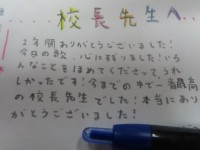 校長先生へ
2年間ありがとうございました!
今年の歌、心に残りました!いろ
んなことをほめてくださって、うれ
しかったです!今までの中で一番最高
の校長先生でした!本当にあり
がとうございました!